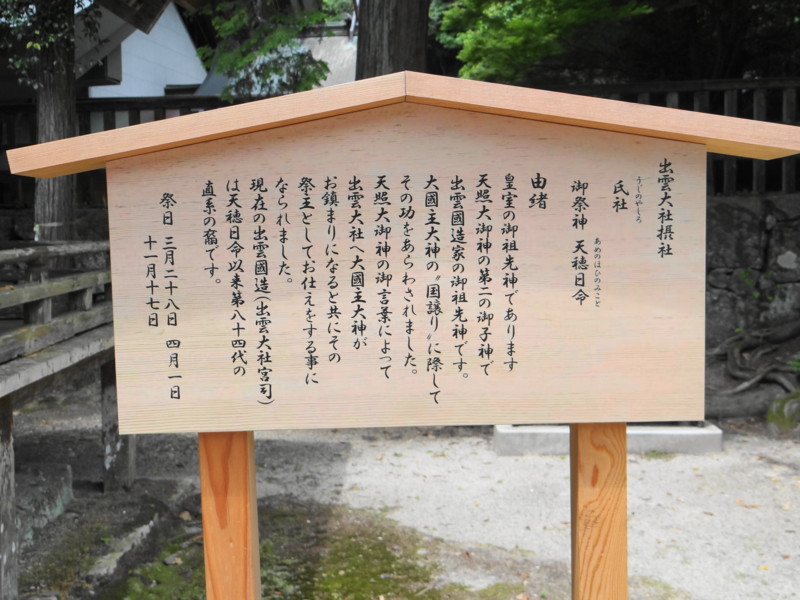 出雲大社摂社
うじのやしろ
氏社
あめのほひのみこと
御祭神 天穂日命
由緒
皇室の御祖先神であります
天照大御神の第二の御子神で
出雲國造家の御祖先神です。
大國主大神の〝国譲り〟に際して
その功をあらわされました。
天照大御神の御言葉によって
出雲大社へ大國主大神が
お鎮まりになると共にその
祭主としてお仕えをする事に
なられました。
現在の出雲國造(出雲大社宮司)
は天穂日命以来第八十四代の
直系の裔です。
祭日 三月二十八日 四月一日
十一月十七日